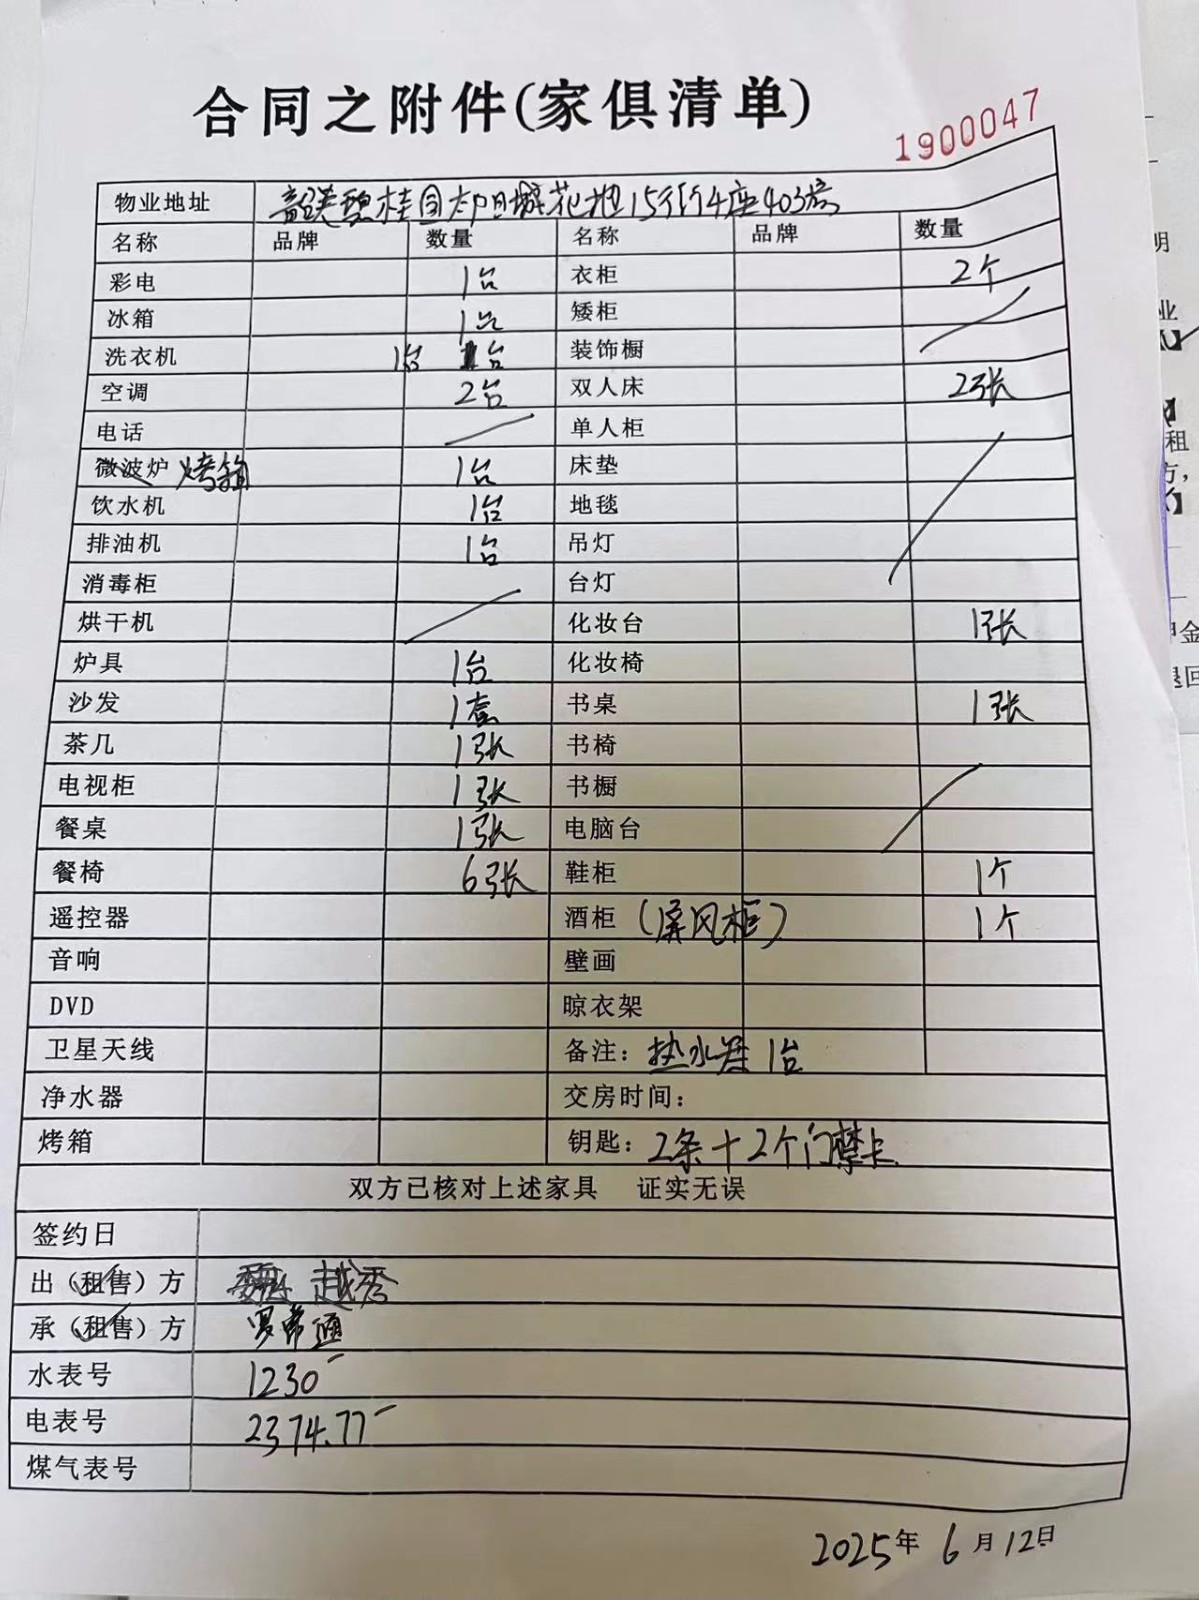 合同之附件(家俱清单)
1900047
物业地址 韶关碧桂园太阳城花地15街4座403房
名称 品牌 数量 名称 品牌 数量
彩电 1台 衣柜 2个
冰箱 1台 矮柜
洗衣机 1台 1台 装饰橱
空调 2台 双人床 2张
电话 单人柜
微波炉 烤箱 1台 床垫
饮水机 1台 地毯
排油机 1台 吊灯
消毒柜 台灯
烘干机 化妆台 1张
炉具 1台 化妆椅
沙发 1套 书桌 1张
茶几 1张 书椅
电视柜 1张 书橱
餐桌 1张 电脑台
餐椅 6张 鞋柜 1个
遥控器 酒柜 (屏风柜) 1个
音响 壁画
DVD 晾衣架
卫星天线 备注: 热水器 1台
净水器 交房时间:
烤箱 钥匙: 2条+2个门禁卡
双方已核对上述家具 证实无误
签约日
出(租售)方 魏 越秀
承(租售)方 罗常通
水表号 1230
电表号 2374.77
煤气表号
2025年 6月12日
明
业
租
方,
甲金
退回